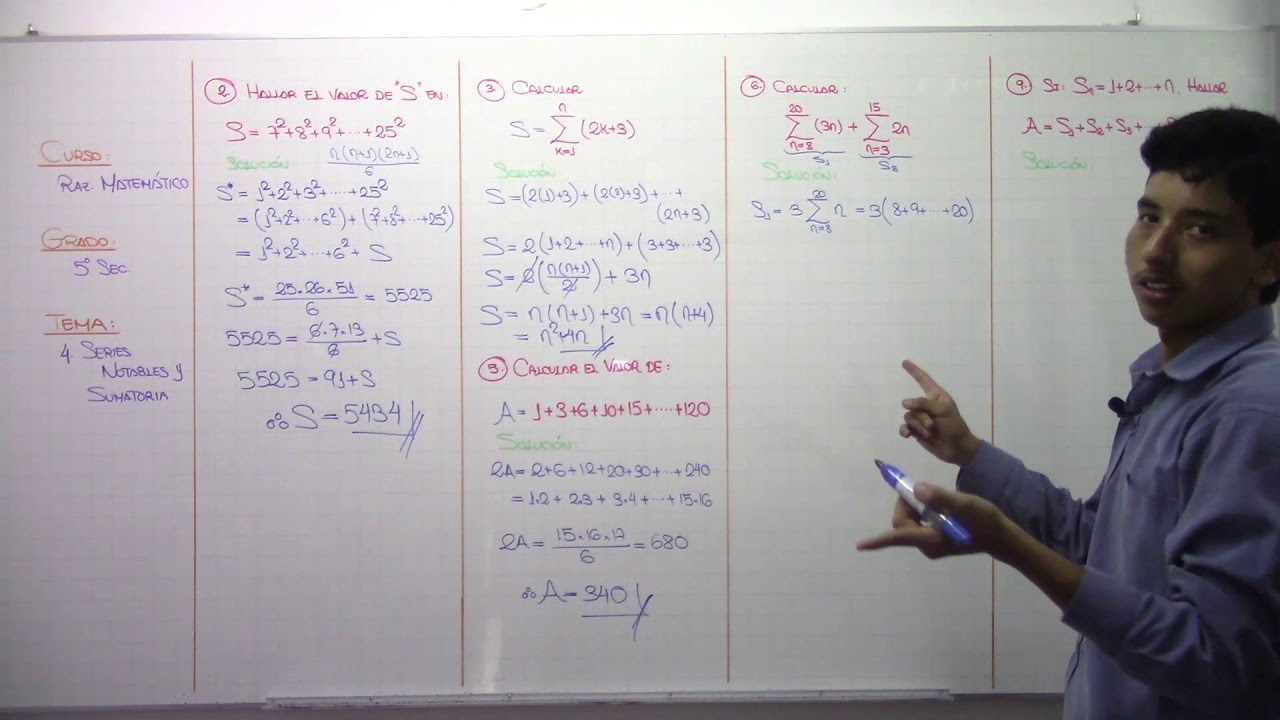 CURSO:
RAZ. MATEMÁTICO
GRADO:
5° SEC.
TEMA:
4. SERIES
NOTABLES Y
SUMATORIA
2. HALLAR EL VALOR DE "S" EN:
S = 7²+8²+9²+...+25²
SOLUCIÓN: n(n+1)(2n+1)/6
S* = 1²+2²+3²+...+25²
= (1²+2²+...+6²)+(7²+8²+...+25²)
= 1²+2²+...+6² + S
S* = 25.26.51/6 = 5525
5525 = 6.7.13/6 + S
5525 = 91+S
∴ S = 5434
3. CALCULAR
S = Σ_{k=1}^{n} (2k+3)
SOLUCIÓN:
S = (2(1)+3)+(2(2)+3)+...+
(2n+3)
S = 2(1+2+...+n)+(3+3+...+3)
S = 2(n(n+1)/2) + 3n
S = n(n+1)+3n = n(n+4)
= n²+4n
5. CALCULAR EL VALOR DE:
A = 1+3+6+10+15+...+120
SOLUCIÓN:
2A = 2+6+12+20+30+...+240
= 1.2 + 2.3 + 3.4 + ... + 15.16
2A = 15.16.17/6 = 680
∴ A = 340
6. CALCULAR:
Σ_{n=8}^{20} (3n) + Σ_{n=3}^{15} 2n
S₁ S₂
SOLUCIÓN:
S₁ = 3 Σ_{n=8}^{20} n = 3(8+9+...+20)
9. SI: Sₙ = 1+2+...+n. HALLAR
A = S₁+S₂+S₃+...
SOLUCIÓN: